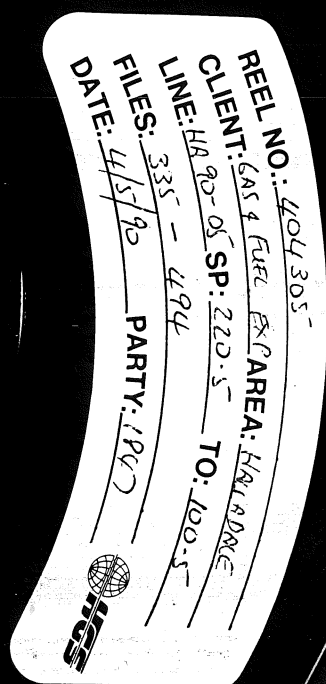 REEL NO.: 404305
CLIENT: GAS & FUEL EXP AREA: HALLADALE
LINE: HA 90-05 SP: 220.5 TO: 100.5
FILES: 335 - 494
DATE: 4/5/90 PARTY:
HGS